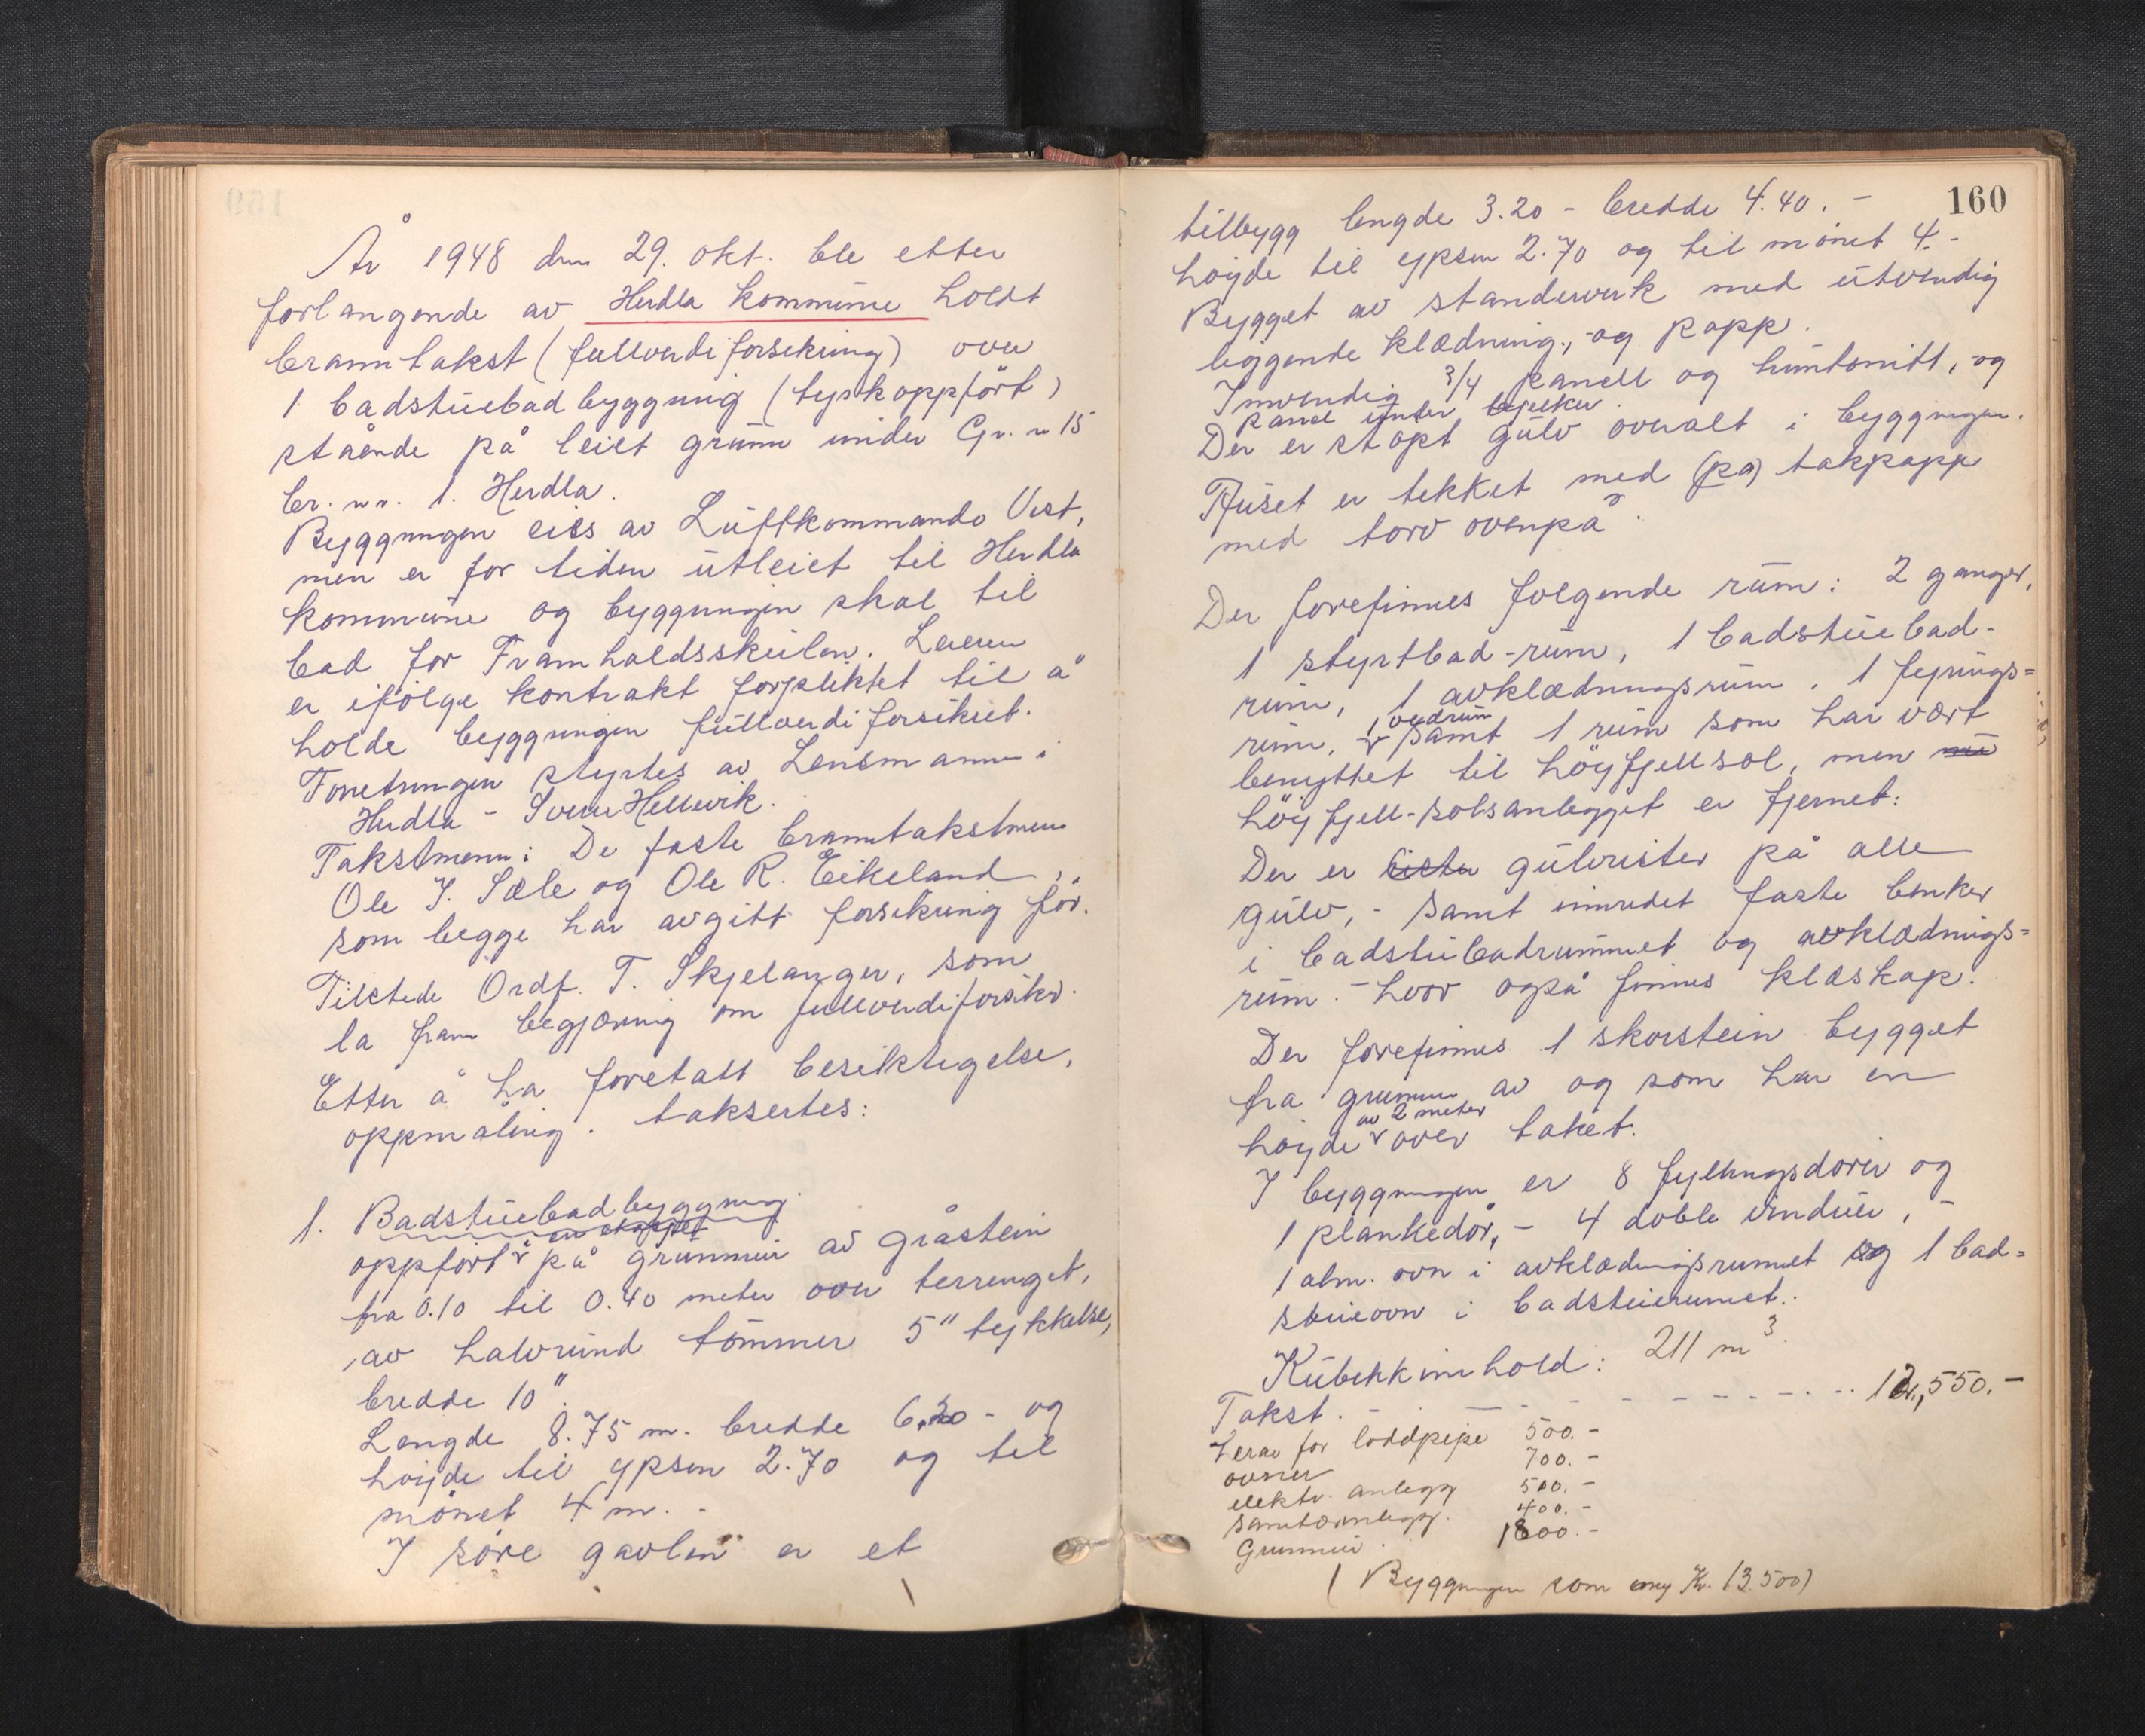 År 1948 den 29. okt. ble etter
forlangende av Herdla kommune holdt
branntakst (fullverdiforsikring) over
1 badstuebadbyggning (tyskoppført)
stående på leiet grunn under Gr. n 15
br. nr. 1. Herdla.
Byggningen eies av Luftkommando Vest,
men er for tiden utleiet til Herdla
kommune og byggningen skal til
bad for Framhaldsskulen. Leieren
er ifølge kontrakt forpliktet til å
holde byggningen fullverdiforsikret.
Forretningen styrtes av Lensmannen i
Herdla - Sverre Hellevik.
Takstmenn: De faste branntakstmenn
Ole J. Sæle og Ole R. Eikeland,
som begge har avgitt forsikring før.
Tilstede Ordf. T. Skjelanger, som
la fram begjæring om fullverdiforsikr.
Etter å ha foretatt besiktigelse,
oppmåling. taksertes:
1. Badstuebadbyggning.
oppført på grunnmur av gråstein
fra 0.10 til 0.40 meter over terrenget,
av halvrund tömmer 5" tykkelse,
bredde 10".
Lengde 8.75 m. bredde 6.30 - og
høyde til ypsen 2.70 og til
mønet 4 m. -
I søre gavlen er et
160
tilbygg lengde 3.20 - bredde 4.40. -
høyde til ypsen 2.70 og til mønet 4. -
Bygget av standerverk med utvendig
liggende klædning, og papp.
Innvendig 3/4 panell og huntonitt, og
panel under bjelker.
Der er støpt gulv overalt i byggningen.
Huset er tekket med (pa) takpapp
med torv ovenpå.
Der forefinnes følgende rum: 2 ganger,
1 styrtbad-rum, 1 badstuebad-
rum, 1 avklædningsrum, 1 fyrings=
1 vedrum
rum, samt 1 rum som har vært
benyttet til höyfjellsol, men nu
höyfjell-solsanlegget er fjernet:
Der er lister gulvrister på alle
gulv, - samt innredet faste benker
i badstubadrummet og avklædnings=
rum. - hvor også finnes klæskap.
Der forefinnes 1 skorstein bygget
fra grunnen av og som har en
av 2 meter
høyde over taket.
I byggningen er 8 fyllingsdører og
1 plankedør, - 4 doble vinduer, -
1 alm. ovn i avklædningsrummet og 1 bad=
stueovn i badstuerumet.
Kubikkinnhold: 211 m3.
Takst. - - - - - - - 12,550.-
Herav for loddpipe 500.-
ovner 700.-
elektr. anlegg 500.-
sanitæranlegg. 400.-
Grunnmur. 1800.-
(Byggningen som ny Kr. 13.500)